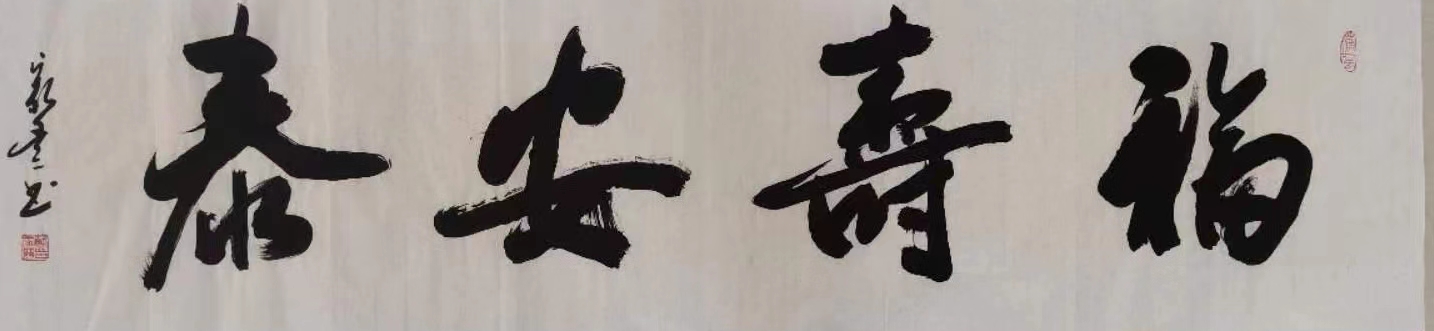 福壽安泰